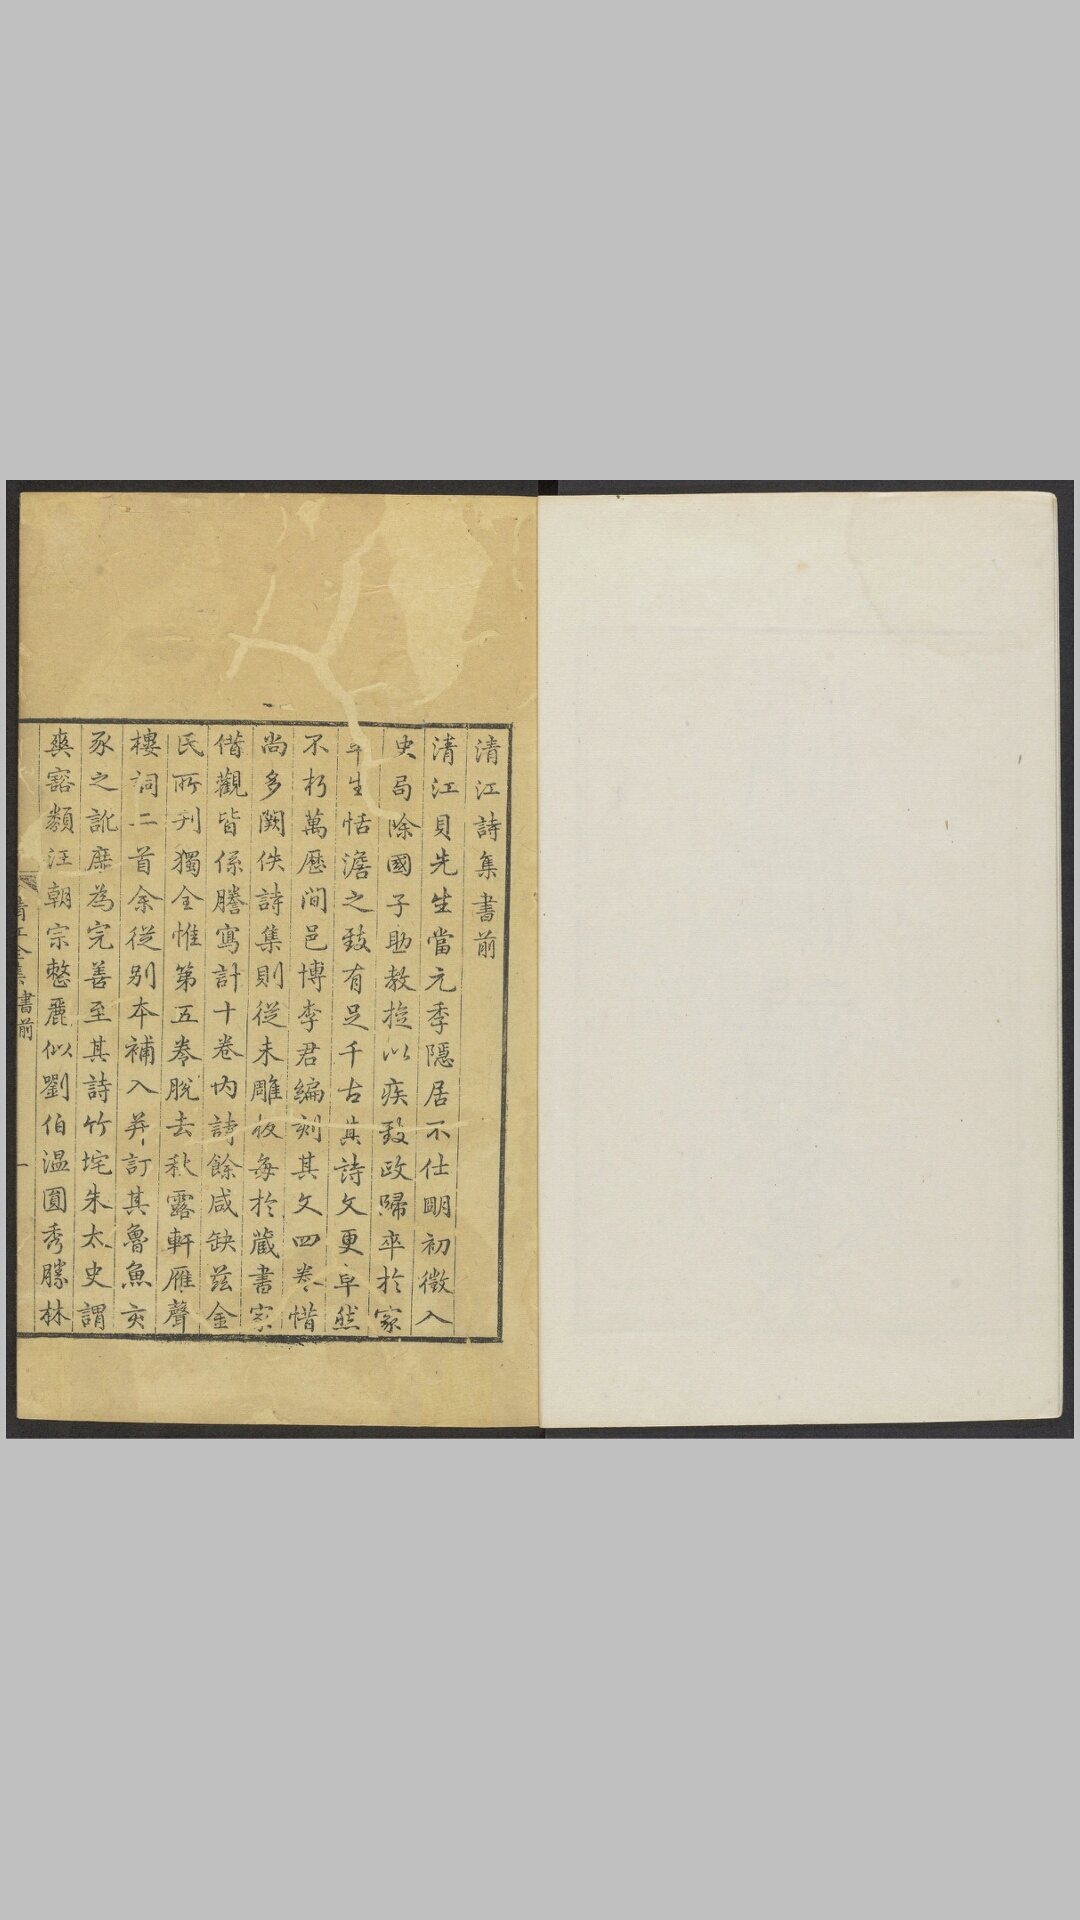 清江詩集書前
清江貝先生當元季隱居不仕眀初徴入
史局除國子助教㝎以疾致政歸卒於家
平生恬澹之致有足千古其詩文更卓然
不朽萬厯间邑博李君編刻其文四卷惜
尚多闕佚詩集則從未雕板每於蔵書家
借觀皆係謄寫計十卷内詩餘咸缺兹金
民所刋獨全惟第五卷脫去秋露軒雁聲
樓詞二首余從别本補入并訂其魯魚亥
豕之訛庶為完善至其詩竹垞朱太史謂
爽豁類汪朝宗整麗似劉伯温圓秀勝林
清江全集 書前 一